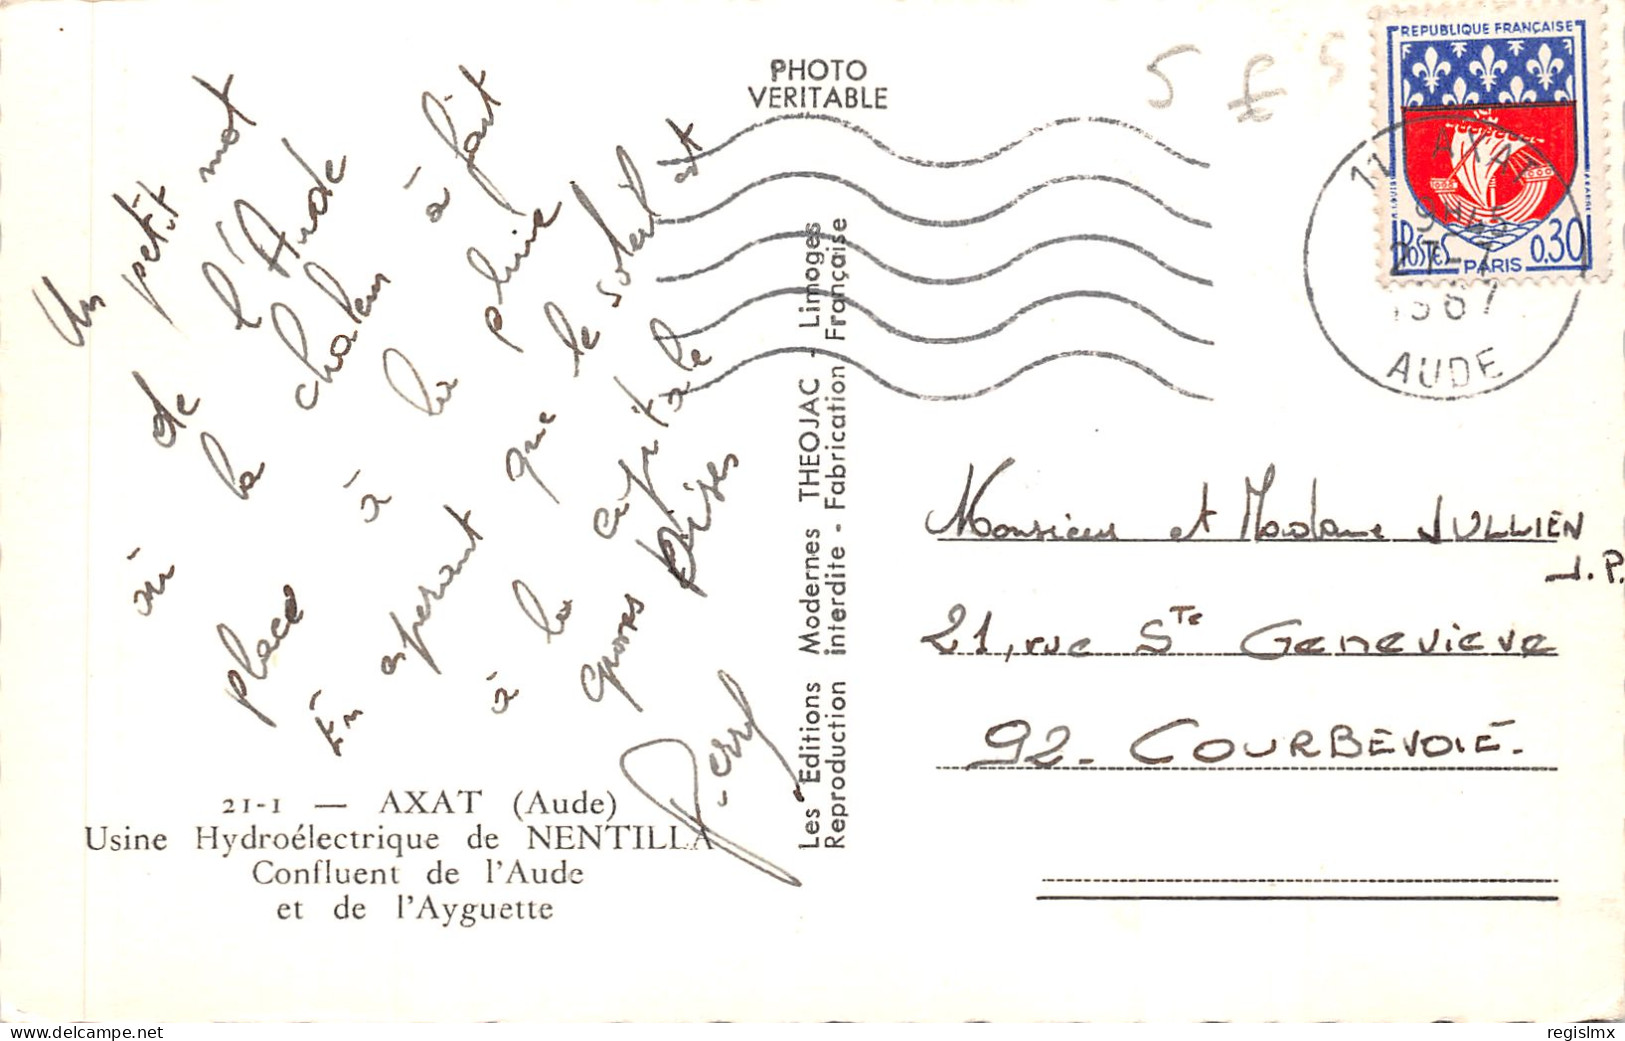 Un petit mot
de l'Aude
où la chaleur à fait
place à la pluie
En esperant que le soleil est
à la capitale
grosses bises
P-erry
21-1 — AXAT (Aude)
Usine Hydroélectrique de NENTILLA
Confluent de l'Aude
et de l'Ayguette
PHOTO
VERITABLE
Les Editions Modernes THEOJAC - Limoges
Reproduction interdite - Fabrication Française
5 £ 5
REPUBLIQUE FRANÇAISE
POSTES
PARIS
0.30
11 AXAT
9H45
27-7
1967
AUDE
Monsieur et Madame JULLIEN
J.P.
21, rue Ste Genevieve
92- COURBEVOIE.
regislmx